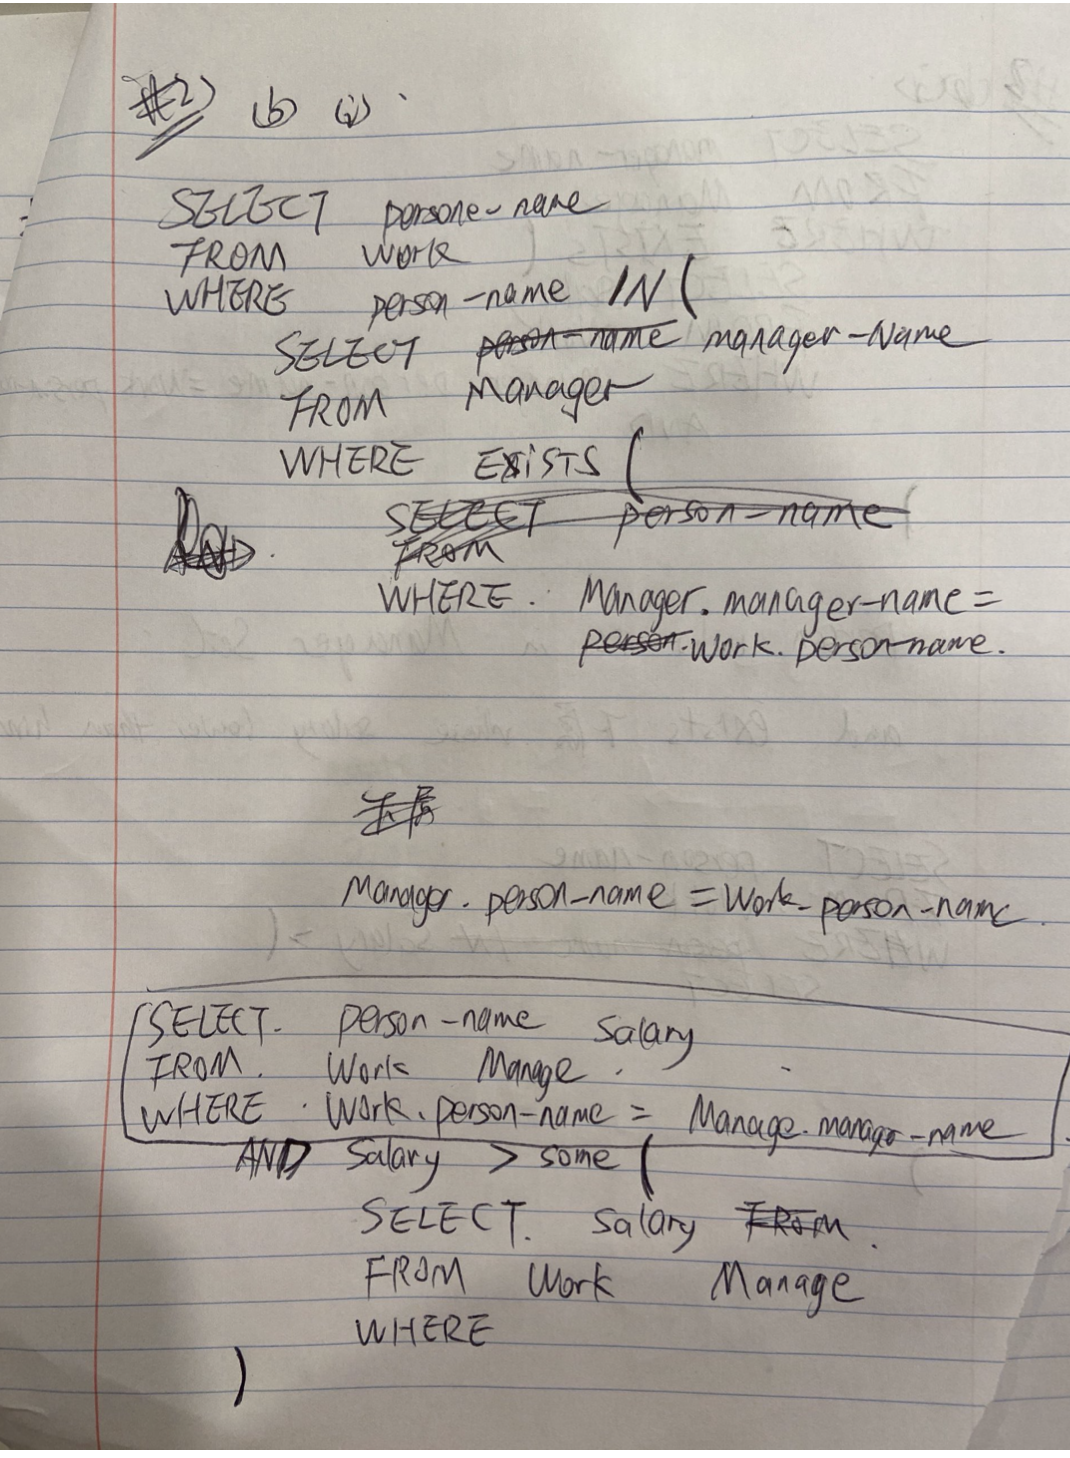 #2) (b) (i).
SELECT persone-name
FROM work
WHERE person-name IN (
SELECT person-name manager-Name
FROM Manager
WHERE EXiSTS (
SELECT person-name
FROM
AND.
WHERE. Manager.manager-name =
person.work.person-name.
下属
Manager.person-name = Work.person-name.
SELECT. person-name salary
FROM. Work Manage.
WHERE. Work.person-name = Manage.manager-name
AND Salary > some (
SELECT. salary FROM.
FROM Work Manage
WHERE
)